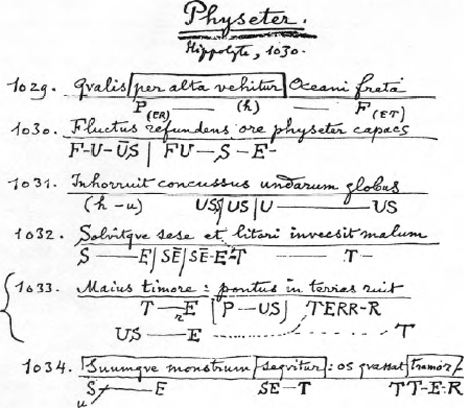 Physeter.
Hippolyte, 1030.
1029. Qvalis per alta vehitur Oceani freta
P(ER) —— (h) — F(ET)
1030. Fluctus refundens ore physeter capacs
F-U-ŪS | FU—S—E-
1031. Inhorruit concussus undarum globus
(h-u) US/ US | U —— US
1032. Solvitqve sese et litori invecsit malum
S —— E/ SĒ/ SĒ-E-T —— T-
1033. Maius timore : pontus in terras ruit
T—E [P—US] TERR-R
r
US — E T
1034. Suumqve monstrum seqvitur : os qvassat tremor
S — E SE-T TT-E-R
u